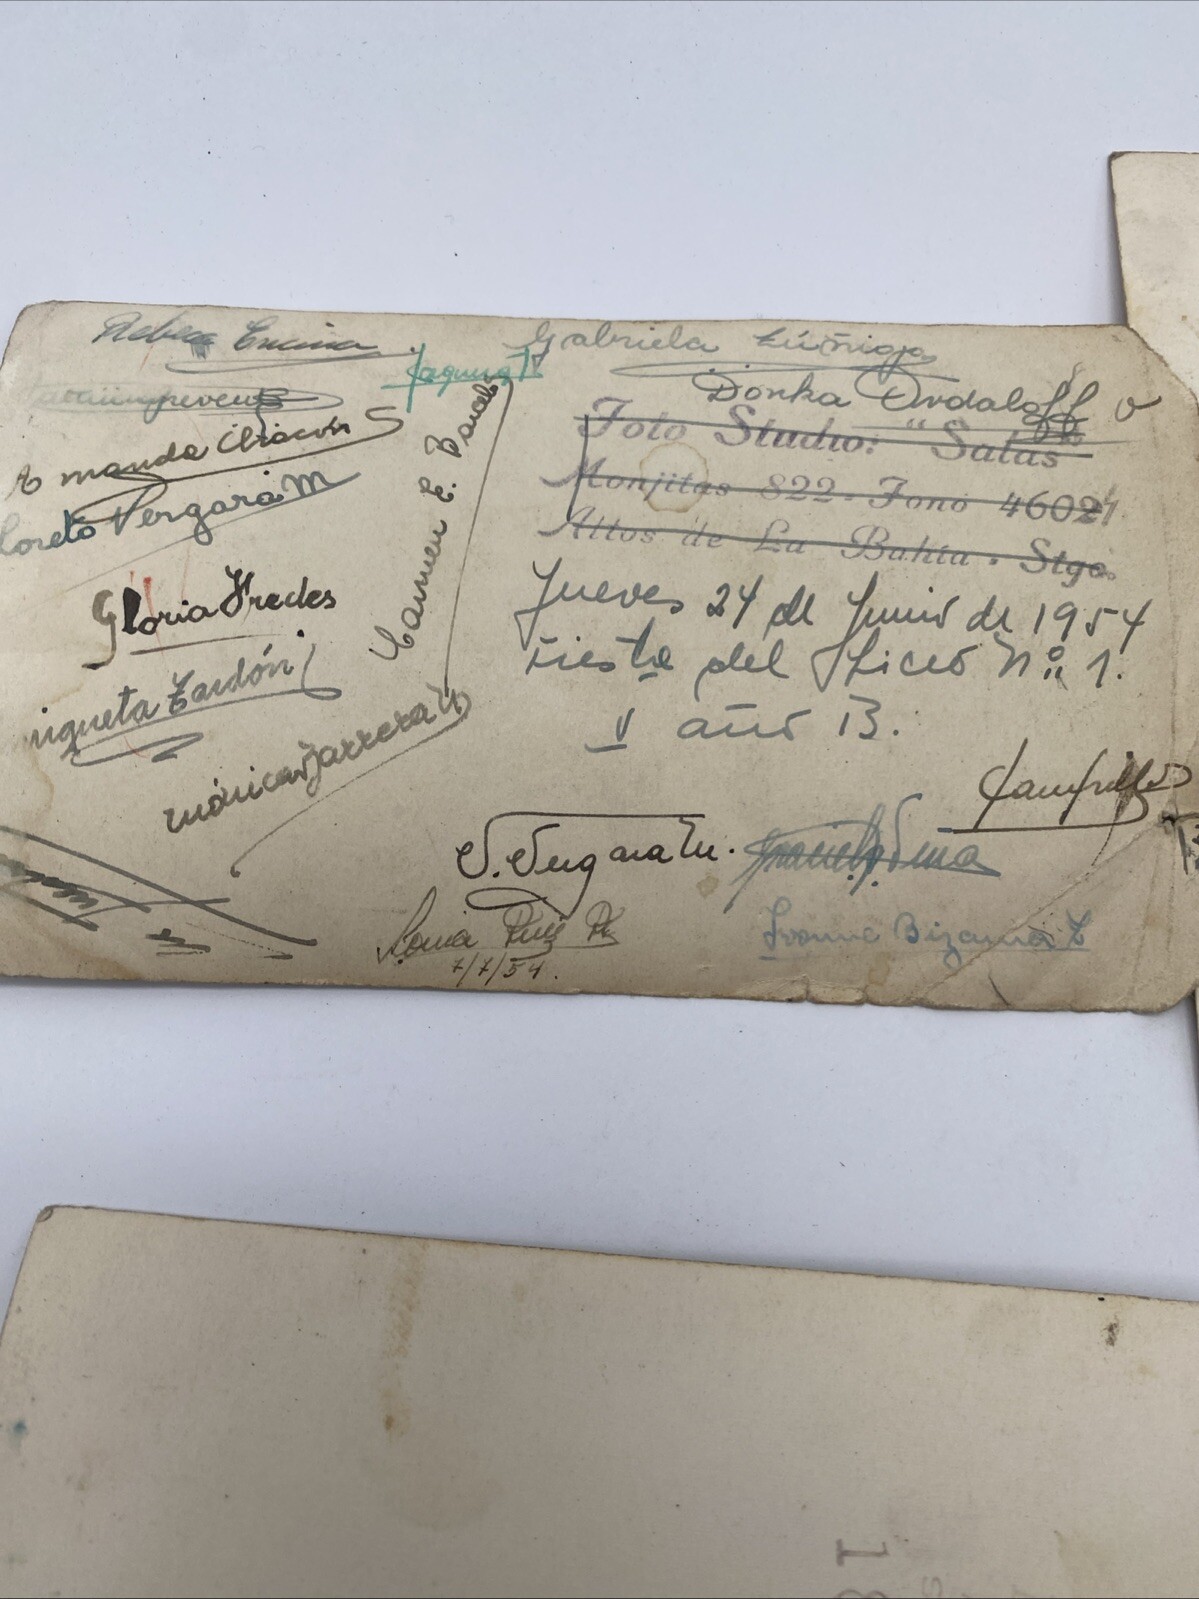 Rebeca Encina.
Gabriela Zúñiga
Donka Ordaloff
Amanda Chacón S
Loreto Vergara M
Carmen E.
Foto Studio: "Salas
Monjitas 822 - Fono 46024
Altos de La Bahía - Stgo.
Gloria Fredes
Jueves 24 de Junio de 1954
Fiesta del Liceo Nº 1.
V año B.
iqueta Zardón
Mónica Barrera
S. Vergara M.
Sonia Ruiz R
7/7/54.
Ivonne Bizama Z
18